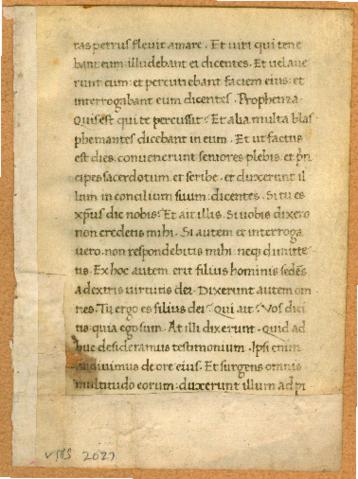 tas petrus flevit amare. Et viri qui tene
bant eum illudebant ei dicentes. Et velave
runt eum: et percutiebant faciem eius: et
interrogabant eum dicentes. Prophetiza
Quis est qui te percussit? Et alia multa blas
phemantes dicebant in eum. Et ut factus
est dies. convenerunt seniores plebis. et p̄ri
cipes sacerdotum et scribe. et duxerunt il
lum in concilium suum: dicentes. Si tu es
xp̄us dic nobis. Et ait illis. Si vobis dixero
non credetis mihi. Si autem et interroga
vero. non respondebitis mihi: neq; dimitte
tis. Ex hoc autem erit filius hominis sedēs
a dextris virtutis dei. Dixerunt autem om
nes. Tu ergo es filius dei? Qui ait. Vos dici
tis: quia ego sum. At illi dixerunt. Quid ad
huc desideramus testimonium. Ipsi enim
audivimus de ore eius. Et surgens omnis
multitudo eorum: duxerunt illum ad pi
2027